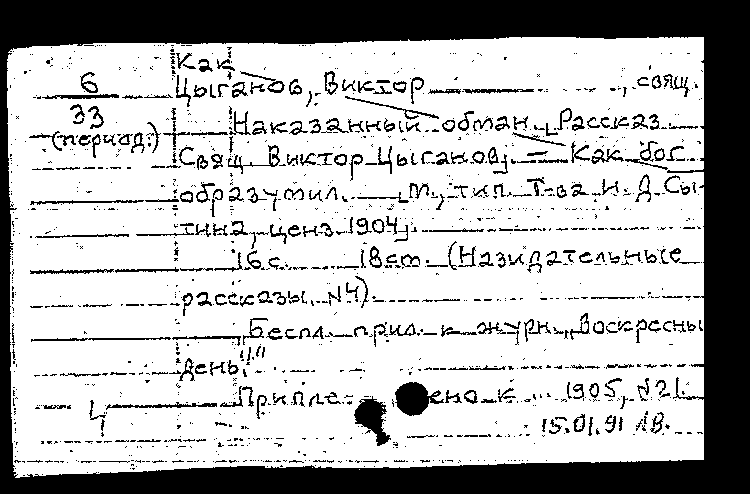 Как
6
Цыганов, Виктор , свящ.
33
(период.)
Наказанный обман. Рассказ
Свящ. Виктор Цыганов. – Как бог
образумил. М., тип. Т-ва И. Д. Сы-
тина, ценз. 1904.
16 с. 18 см. (Назидательные
рассказы. №4).
„Беспл. прил. к журн. „Воскресны
день".“
4
Припле- ено к ... 1905, №21.
15.01.91 ЛВ.